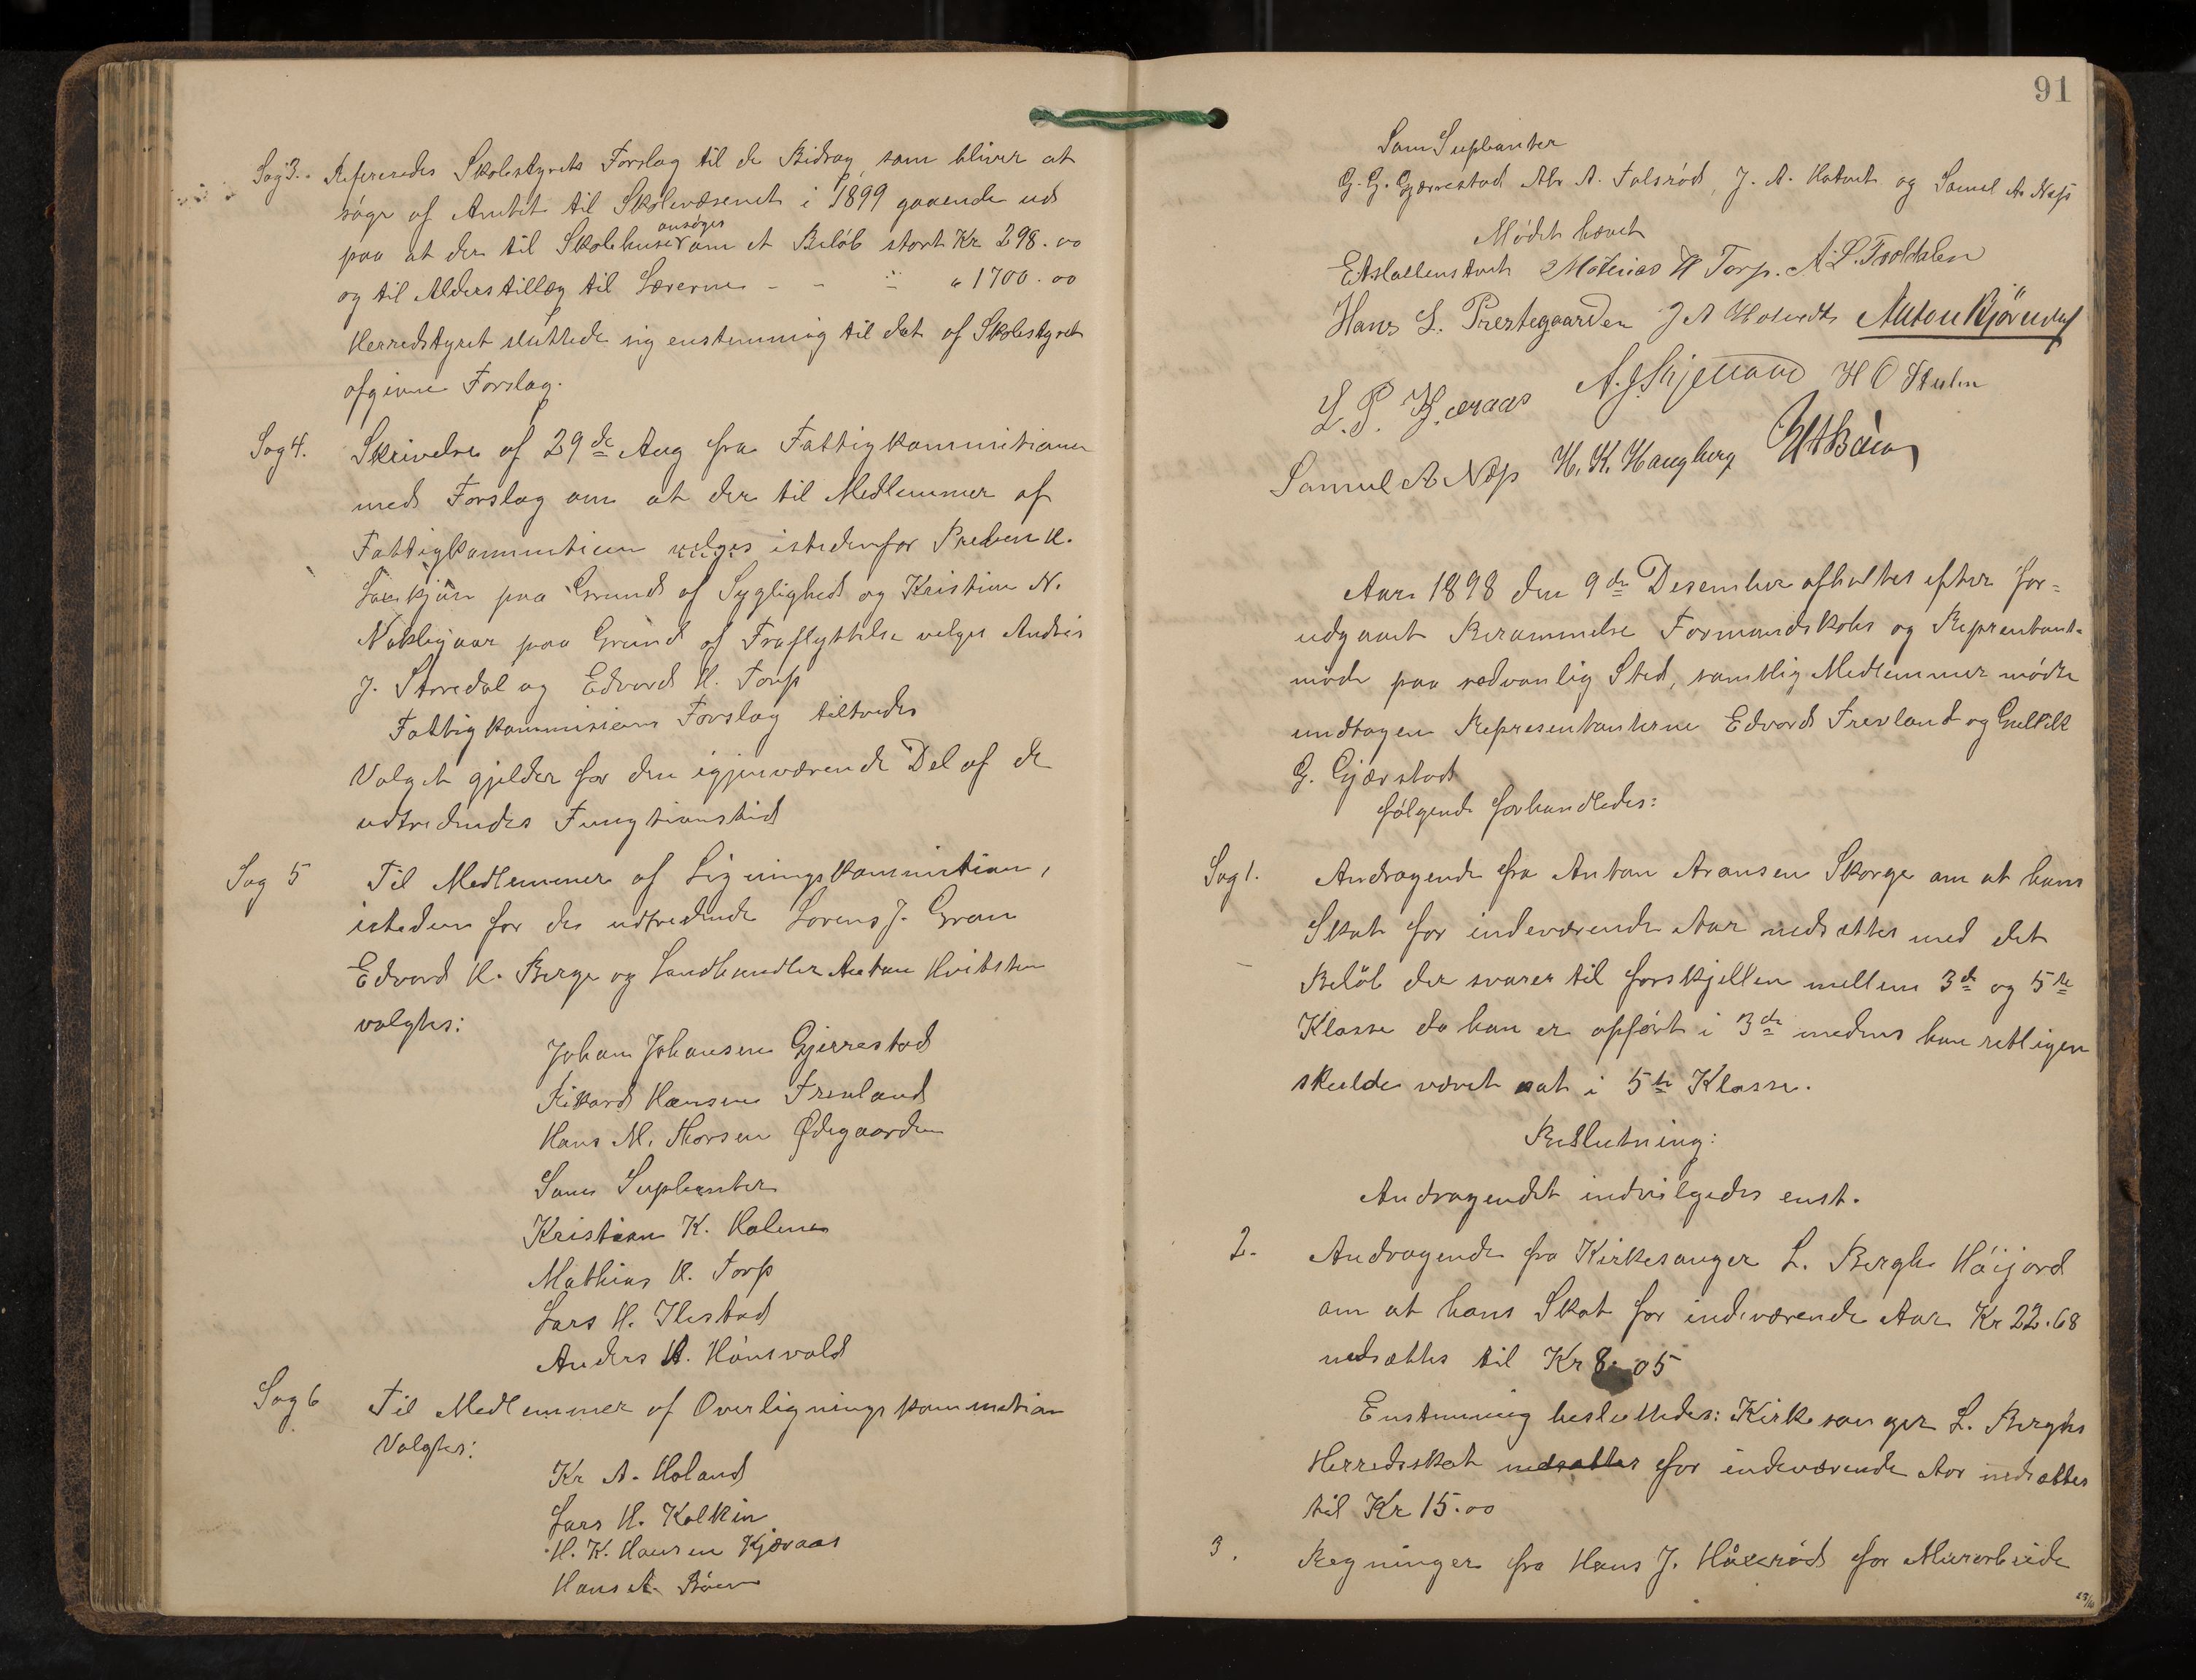 Sag 3. Refereredes Skolestyrets Forslag til de Bidrag, som bliver at
søge af Amtet til Skolevæsenet i 1899 gaaende ud
ansøges
paa at der til Skolehuse om et Beløb stort Kr 298.00
og til Alderstillæg til Lærerne - - " " 1700.00
Herredstyret sluttede sig enstemmig til det af Skolestyret
afgivne Forslag.
Sag 4. Skrivelse af 29de Aug fra Fattigkommisionen
med Forslag om at der til Medlemmer af
Fattigkommisionen velges istedenfor Preben H.
paa Grund af Syglighed og Kristian N.
paa Grund af Fraflyttelse velges Andreas
J. Storedal og Edvard H. Torp
Fattigkommisions Forslag tiltrædes
Valget gjelder for den igjenværende Del af de
udtrædendes Fungtionstid
Sag 5 Til Medlemmer af Ligningskommistion,
isteden for de udtrædende Lorens J. Gran
Edvard H. Berge og Landhandler Anton Hvitsten
valgtes:
Johan Johansen Gjerrestad
Rikard Hansen Fresland
Hans M. Thorsen Ødegaarden
Som Suplanter
Kristian K. Holmen
Mathias H. Torp
Lars H. Ilestad
Anders A. Hånsvald
Sag 6 Til Medlemmer af Overligningskommistion
Valgtes:
Kr A. Holand
Lars H. Kolkin
H. K. Hansen Kjæraas
Hans A. Bøen
91
Som Suplanter
G. G. Gjærrestad Abr A. Falsrød, J. A. Hotvet og Samuel A Næs
Mødet hævet
Mathias H Torp. A. L. Trolldalen
Hans L. Prestegaarden J A Hotvedt Anton Bjørndal
L. P. Kjæraas A. J. Skjelland H O Stulen
Samuel A Næs H. K. Haugberg H A Bøen
Aar 1898 den 9de Desember afholtes efter for-
udgaaet Berammelse Formandskabs og Reprentant-
møde paa sedvanlig Sted, samtlig Medlemmer mødte
undtagen Representanterne Edvard Fresland og Gullik
G. Gjærstad
følgende forhandledes:
Sag 1. Andragende fra Anton Aronsen Skorge om at hans
Skat for indeværende Aar nedsættes med det
Beløb der svarer til forskjellen mellem 3de og 5te
Klasse da han er opført i 3de medens han retligen
skulde været sat i 5te Klasse.
Beslutning:
Andragendet indvilgedes enst.
2. Andragende fra Kirkesanger L. Bergh Høijord
om at hans Skat for indeværende Aar Kr 22.68
nedsættes til Kr 8.05
Enstemmig besluttedes: Kirkesanger L. Berghs
Herredsskat nedsættes for indeværende Aar nedsættes
til Kr 15.00
3. Regninger fra Hans J. for Murarbeide